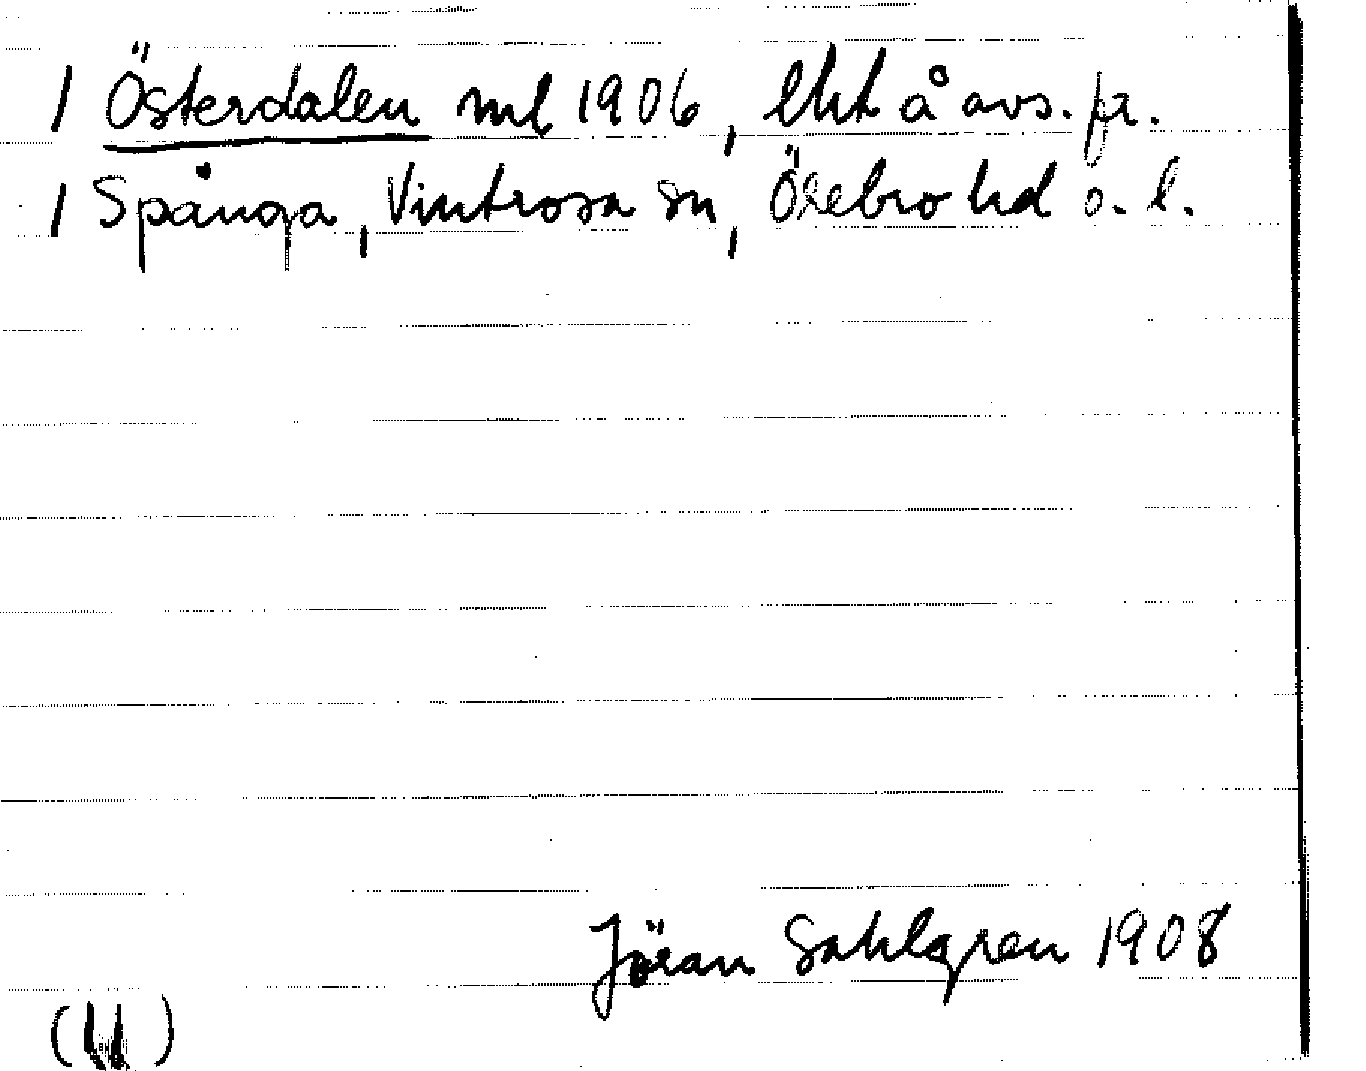 | Österdalen ml 1906, lht å avs. fr.
| Spånga, Vintrosa sn, Örebro hd o. l.
Jöran Sahlgren 1908